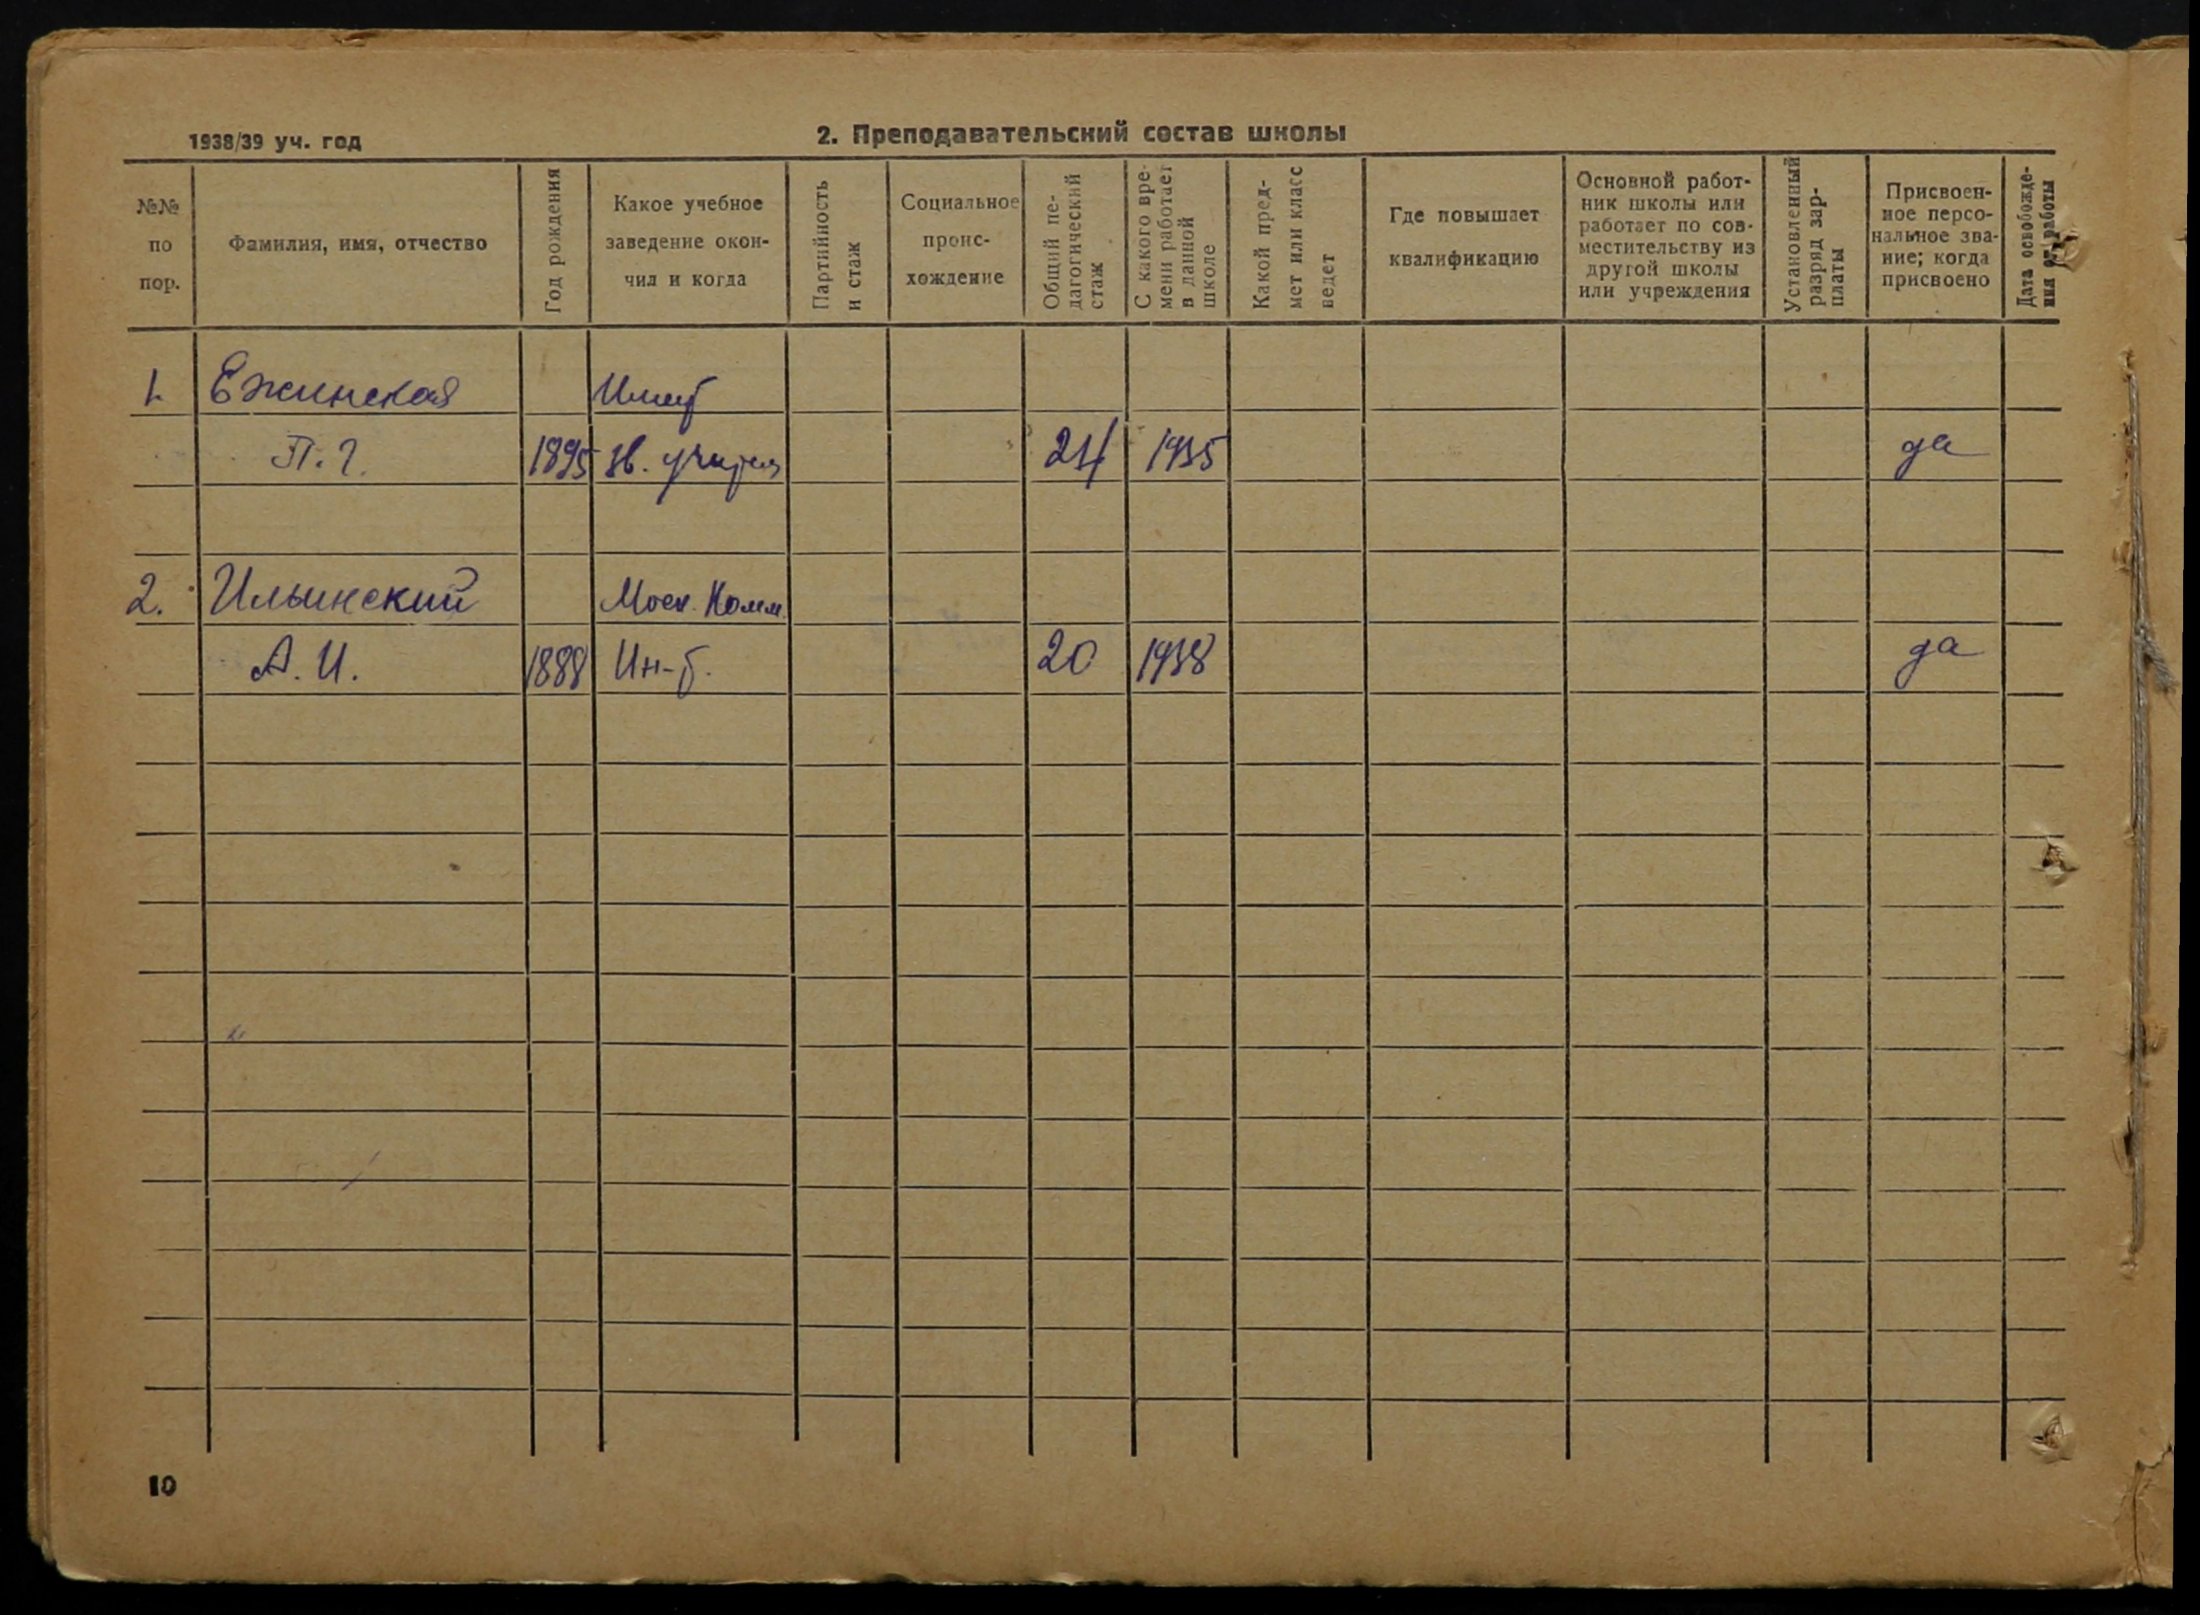 1938/39 уч. год
2. Преподавательский состав школы
№№ по пор.
Фамилия, имя, отчество
Год рождения
Какое учебное заведение окончил и когда
Партийность и стаж
Социальное происхождение
Общий педагогический стаж
С какого времени работает в данной школе
Какой предмет или класс ведет
Где повышает квалификацию
Основной работник школы или работает по совместительству из другой школы или учреждения
Установленный разряд зарплаты
Присвоенное персональное звание; когда присвоено
Дата освобождения от работы
1. Ежинская
П. Г. 1895 зв. учителя 24 1935 да
2. Ильинский Моск. Комм.
А. И. 1888 Ин-т. 20 1938 да
10